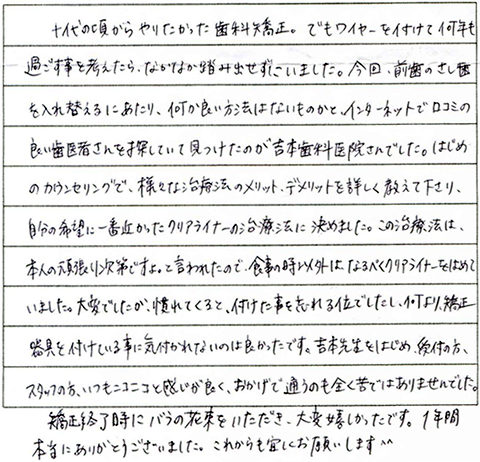 十代の頃からやりたかった歯科矯正。でもワイヤーを付けて何年も
過ごす事を考えたら、なかなか踏み出せずにいました。今回、前歯のさし歯
を入れ替えるにあたり、何か良い方法はないものかと、インターネットで口コミの
良い歯医者さんを探していて見つけたのが吉本歯科医院さんでした。はじめ
のカウンセリングで、様々な治療法のメリット、デメリットを詳しく教えて下さり、
自分の希望に一番近かったクリアライナーの治療法に決めました。この治療法は、
本人の頑張り次第ですよ。と言われたので、食事の時以外はなるべくクリアライナーをはめて
いました。大変でしたが、慣れてくると、付けた事を忘れる位でしたし、何より、矯正
器具を付けている事に気付かれないのは良かったです。吉本先生をはじめ、受付の方、
スタッフの方、いつもニコニコと感じが良く、おかげで通うのも全く苦ではありませんでした。
矯正終了時にバラの花束をいただき、大変嬉しかったです。1年間
本当にありがとうございました。これからも宜しくお願いします^^